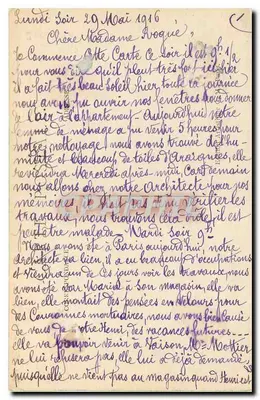 Lundi Soir 29 Mai 1916
(1
Chère Madame Roqué,
Je Commence Cette Carte Ce soir il est 9h 1/2
pour vous dire qu'il pleut très fort ici, hier
il a fait très beau soleil, hier toute la journée
nous avons pu ouvrir nos fenêtres, nous sommes
l'air à l'appartement. Aujourd'hui notre
femme de ménage a pu venir 3 heures pour
notre nettoyage, nous avons trouvé des hu-
midité et beaucoup de toiles d'Araignées, elle
reviendra Mercredi après-midi. Car demain
nous allons chez notre Architecte pour
mémoire vérifier les
travaux, nous trouvons cela il est
peut être malade - Mardi Soir 9h
Nous avons été à Paris aujourd'hui, notre
architecte va bien, il a eu beaucoup d'occupations
et viendra un de ces jours voir les travaux, nous
avons été voir Maria à son magasin, elle va
bien, elle montait des pensées en velours pour
des Couronnes mortuaires, nous avons bien causé
de vous de votre Henri, des vacances futures
elle va pouvoir venir à Voison, Mme Mottier
ne lui refusera pas, elle lui a déjà demandé
puisqu'elle ne vient pas au magasin quand Henri est